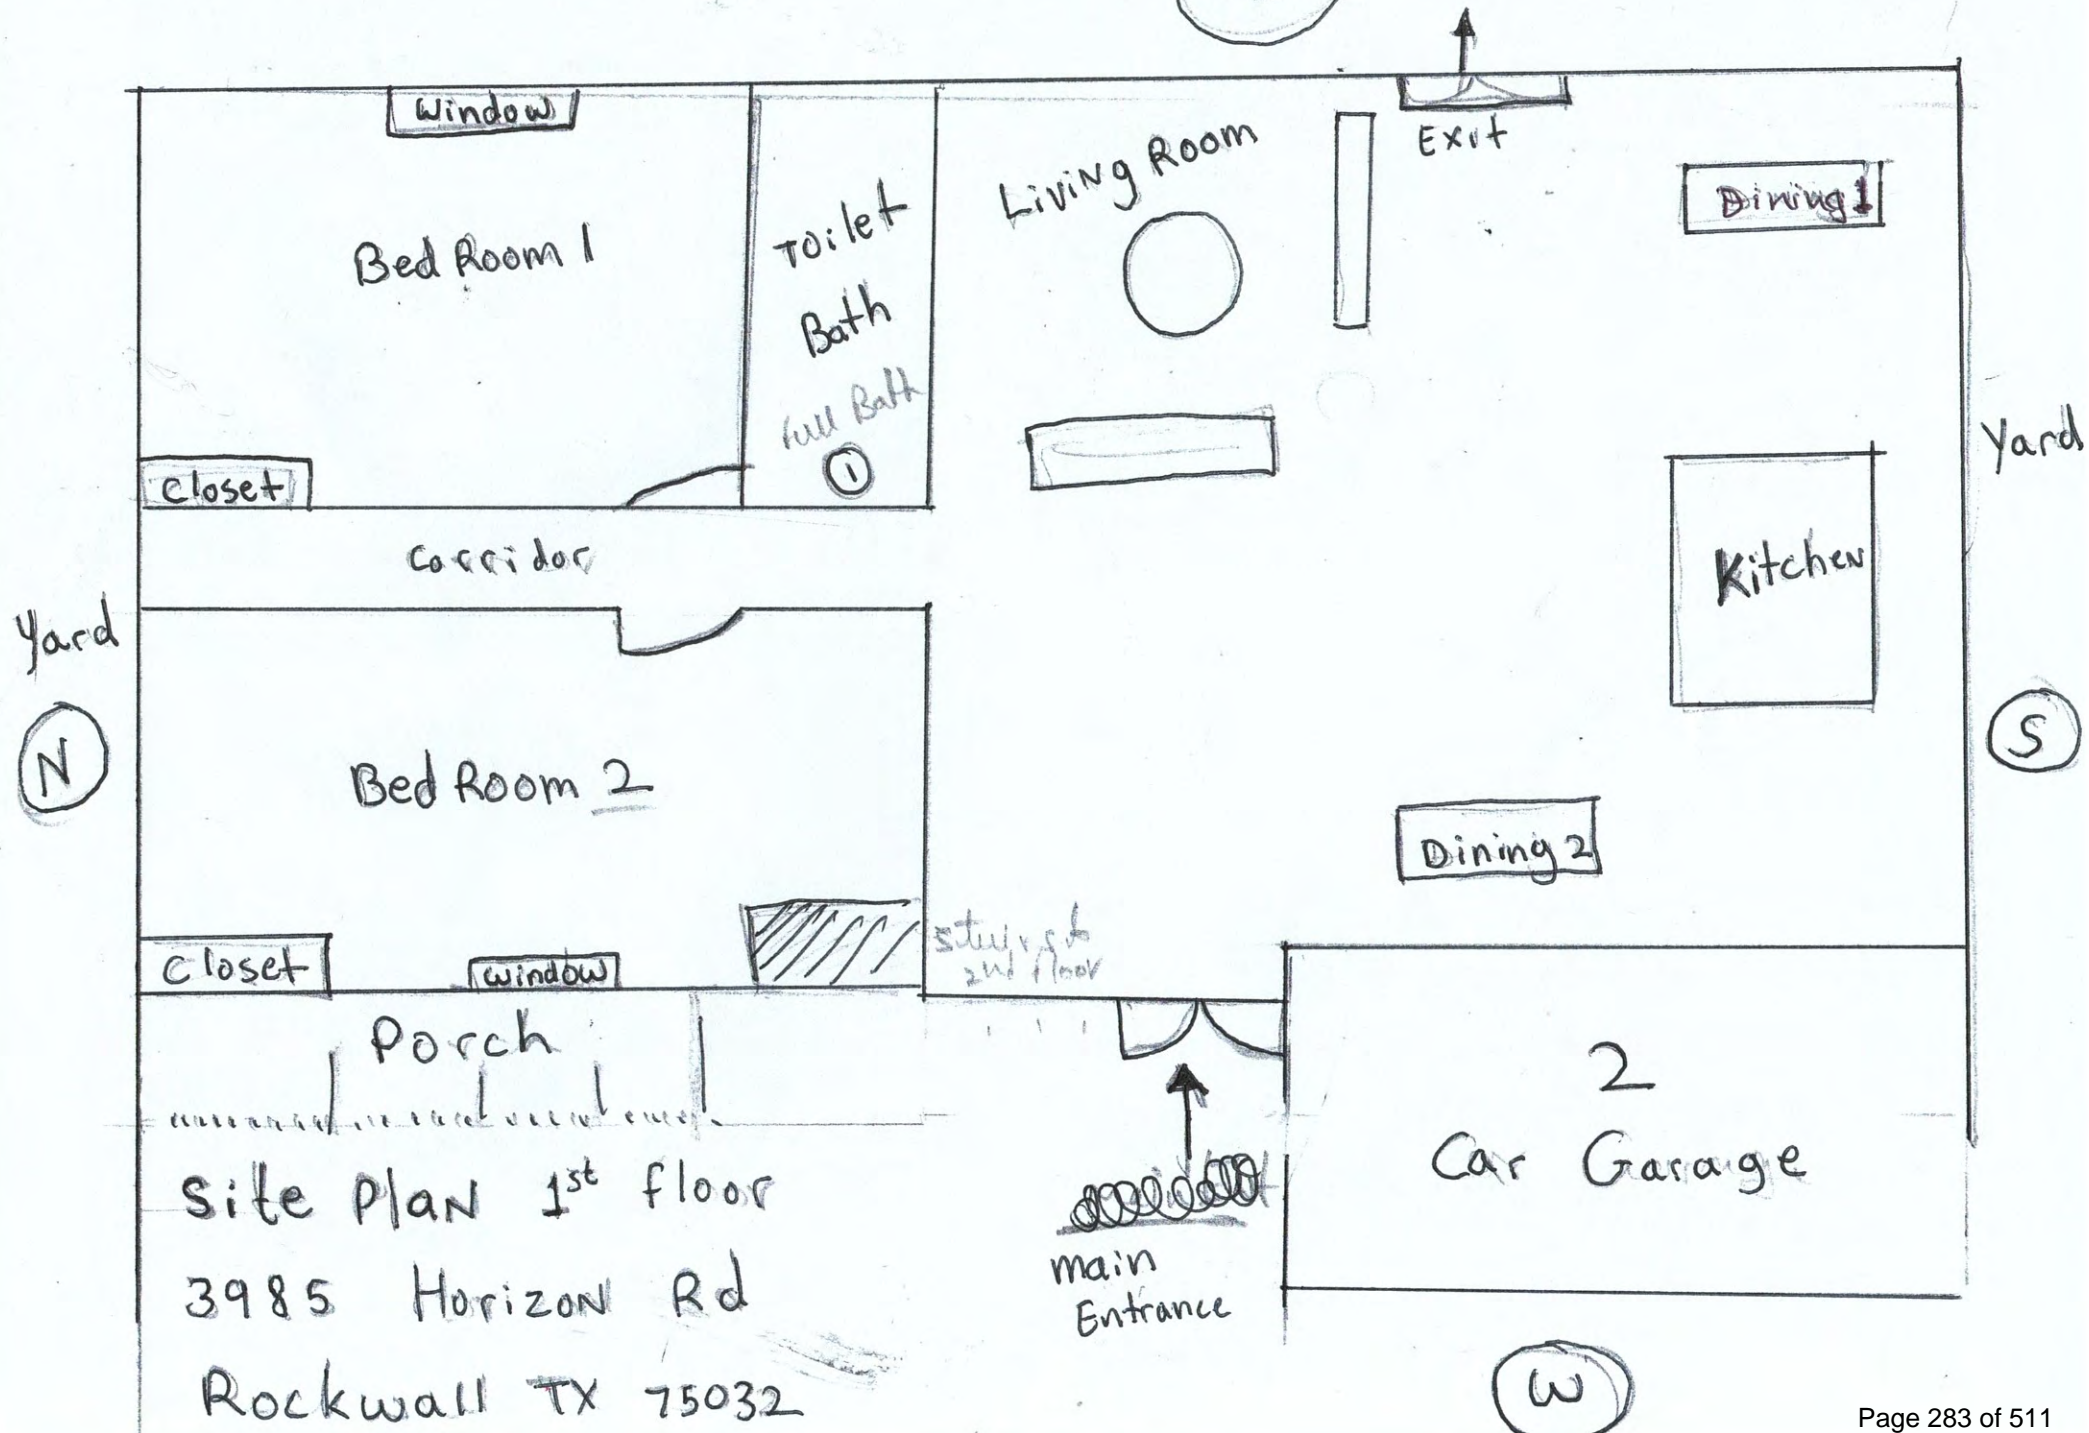 Window
Exit
Living Room
Dining 1
Toilet
Bath
Full Bath
1
Bed Room 1
Closet
Corridor
Yard
Kitchen
Yard
N
S
Bed Room 2
Dining 2
Closet
Window
stairs to
2nd floor
Porch
2
Car Garage
Site PlaN 1st floor
3985 HorizoN Rd
Rockwall TX 75032
main
Entrance
W
Page 283 of 511